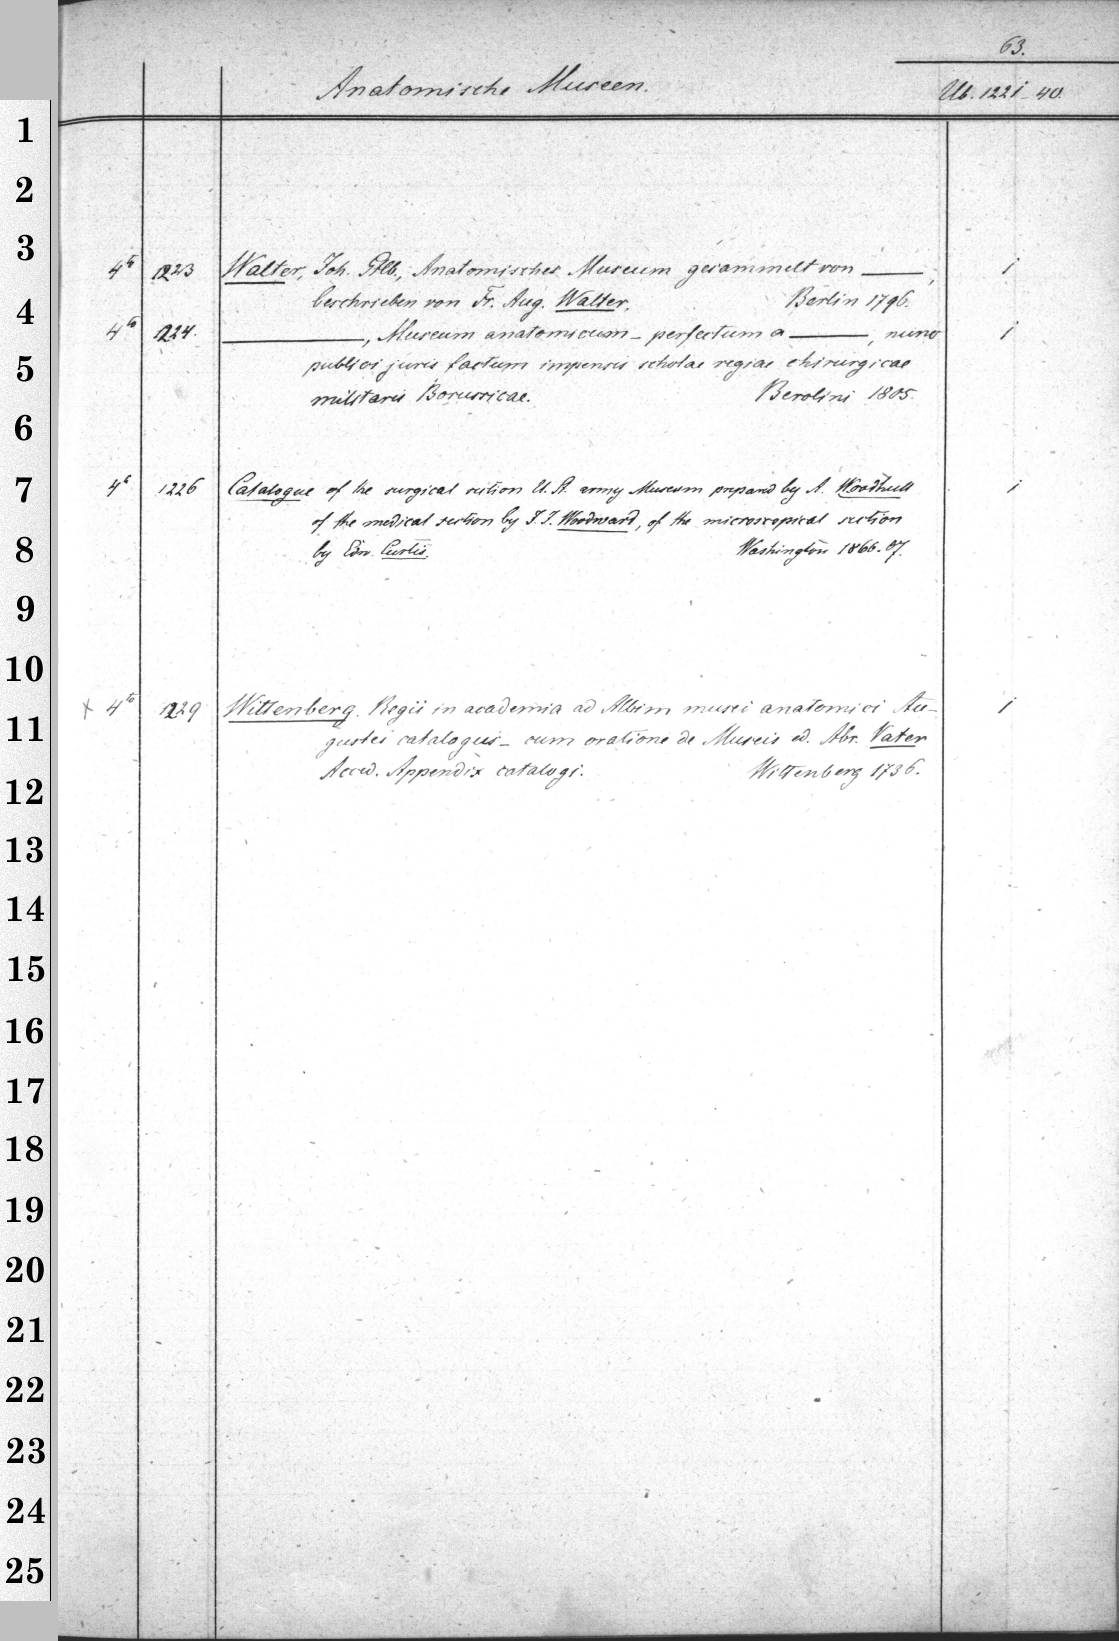 63.
Anatomische Museen. Ub. 1221-40.
1
2
3
4to 1223 Walter, Joh. Gtlb., Anatomisches Museum gesammelt von ——, 1
beschrieben von Fr. Aug. Walter. Berlin 1796.
4
4to 1224. ——, Museum anatomicum - perfectum a ——, nunc 1
5
publici juris factum impensis scholae regiae chirurgicae
militaris Borussicae. Berolini 1805.
6
7
4o 1226 Catalogue of the surgical section U. St. army Museum prepared by A. Woodhull 1
of the medical section by J. J. Woodward, of the microscopical section
8
by Edw. Curtis. Washington 1866-67.
9
10
x 4to 1229 Wittenberg. Regii in academia ad Albim musei anatomici Au- 1
11
gustei catalogus - cum oratione de Museis ed. Abr. Vater
Acced. Appendix catalogi. Wittenberg 1736.
12
13
14
15
16
17
18
19
20
21
22
23
24
25